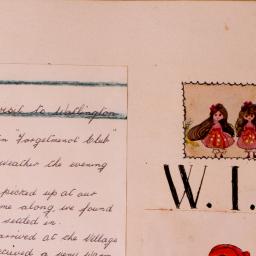 visit to Watlington
"Forgetmenot Club"
weather the evening
at our
me along we found
settled in.
arrived at the Village
received a very warm
W. I.